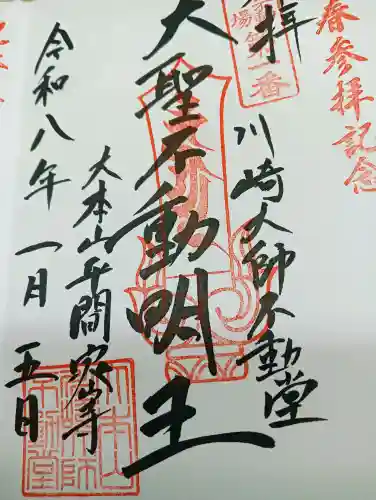 春参拝記念
番
拝
川崎大師不動堂
大聖不動明王
大本山平間寺
令和八年一月五日